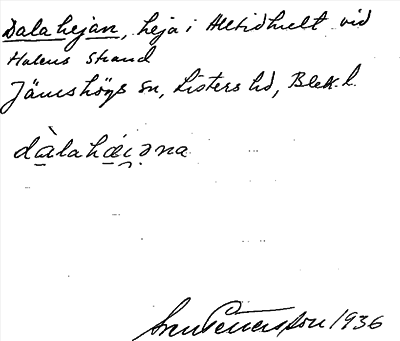 Dalahejan, heja i Alltidhult vid
Halens strand
Jämshögs sn, Listers hd, Blek. l.
dàlahæi̯əna
Sven Pettersson 1936